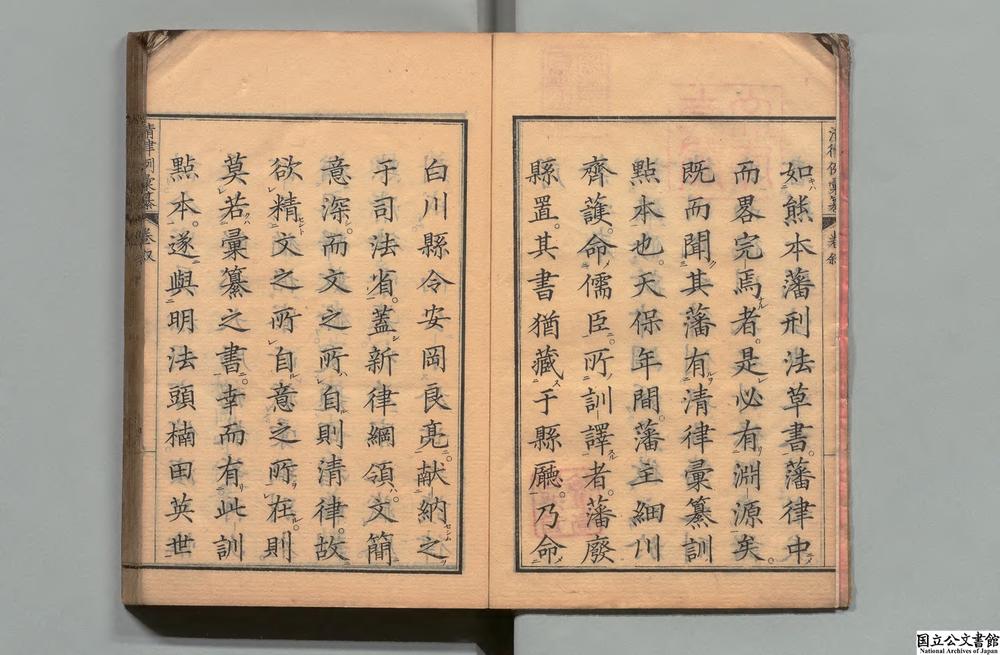 如熊本藩刑法草書。藩律中
而畧完焉者。是必有淵源矣。
既而聞其藩有清律彙纂訓
點本也。天保年間。藩主細川
齊護。命儒臣。所訓譯者。藩廢
縣置。其書猶藏于縣廳。乃命
白川縣令安岡良亮。献納之
于司法省。蓋新律綱領。文簡
意深。而文之所自則清律。故
欲精文之所自意之所在。則
莫若彙纂之書。幸而有此訓
點本。遂與明法頭楠田英世
清律例彙纂
卷叙
国立公文書館
National Archives of Japan